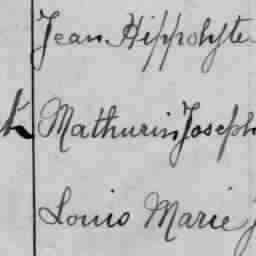 Jean Hippolyte
Mathurin Joseph
Louis Marie